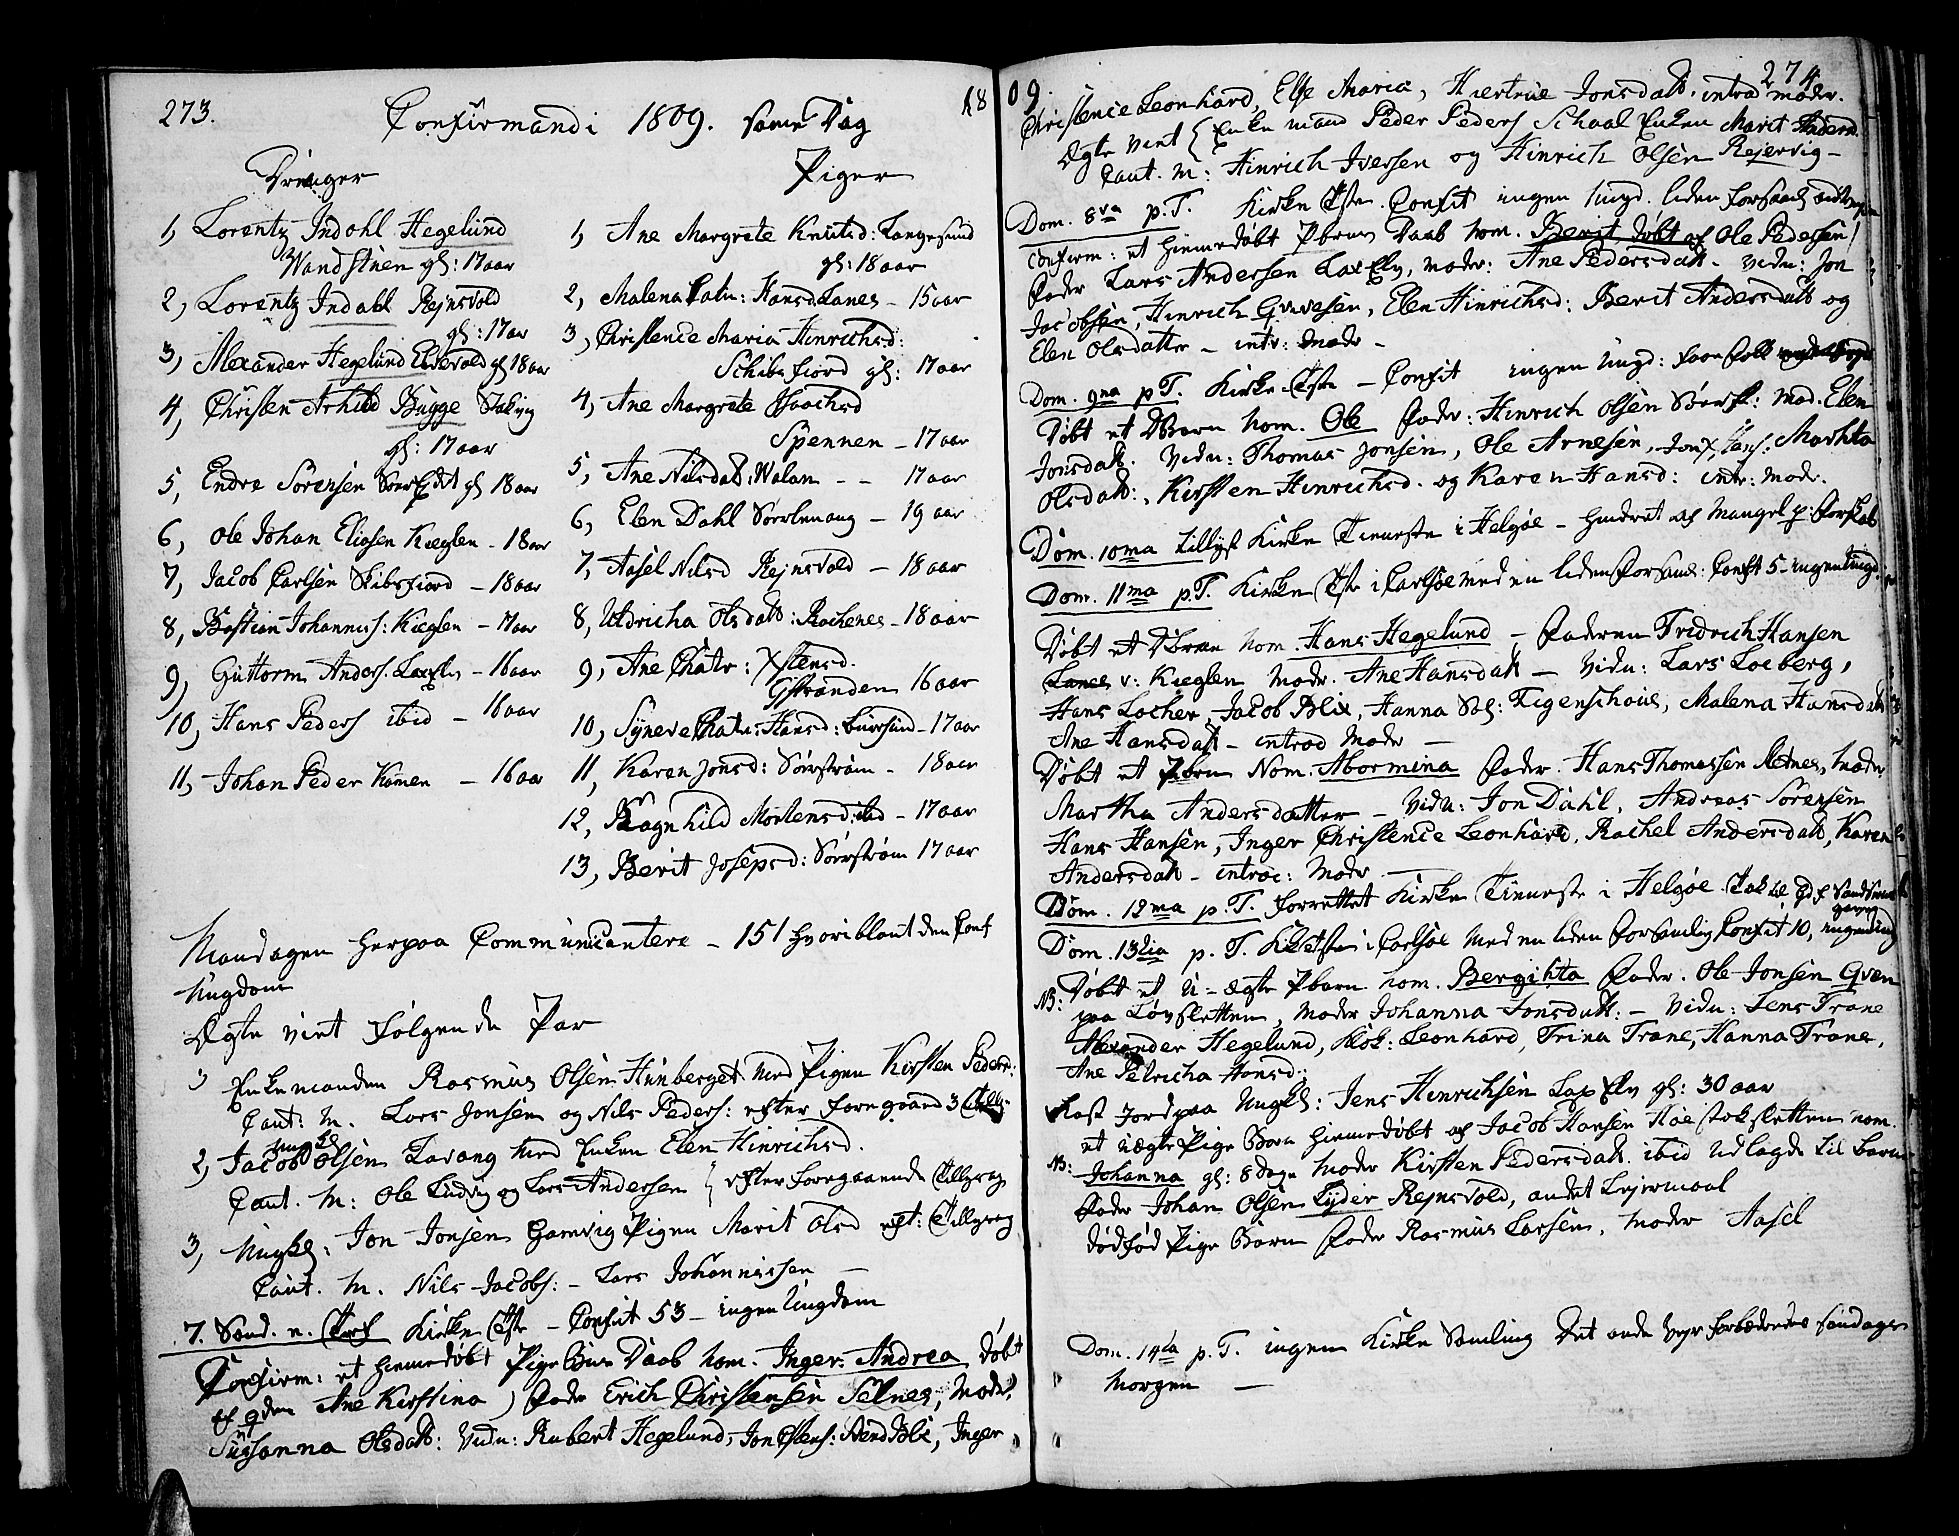 273.
18
Confirmandi 1809. samme Dag
Drenger
1, Lorentz Indahl Hegelund
Vandstuen gl: 17 aar
2, Lorentz Indahl Rejnsvold
gl: 17 aar
3, Alexander Hegelund Elvevold gl 18 aar
4, Christen Arhild Bugge
gl: 17 aar
5, Endre Sörensen gl 18 aar
6, Ole Johan Eliasen Kieglen - 18 aar
7, Jacob Carlsen Skibsfiord - 18 aar
8, Bastian Johanness: Kieglen - 17 aar
9, Guttorm Anders. LaxElv - 16 aar
10, Hans Peders ibid - 16 aar
11, Johan Peder Hamen - 16 aar
Piger
1, Ane Margrete Knutsd: Langesund
gl: 18 aar
2, Malena Catr: Hansd. Lanes - 15 aar
3, Christence Maria Hinrichsd:
Schibsfiord gl: 17 aar
4, Ane Margrete Isaachsd
Spennen - 17 aar
5, Ane Nilsdatt: Walan - - 17 aar
6, Elen Dahl Sörlenang - 19 aar
7, Aasel Nilsd Rejnsvold - 18 aar
8, Uldricha Olsdatt: Rachenes - 18 aar
9, Ane Chatr: Xstensd.
Gstranden 16 aar
10, Syneve Chatr: Hansd: Lursund - 17 aar
11, Karen Jonsd: Sörstrøm - 18 aar
12, Ragnhild Mortensd: ibd - 17 aar
13, Berit Josepsd: Sörstrøm 17 aar
Mandagen herpaa Communicantere - 151 hvoriblant den Conf
Ungdom
Ægte viet følgende Par
Enkemanden Rasmus Olsen Hunberget med Pigen Kirsten Pedersd:
Caut: M. Lars Jonsen og Nils Peders: efter foregaaend 3
Ungkl
2, Jacob Olsen Lavang med Enken Elen Hinrichsd.
Caut. M: Ole Ludvig og Lars Andersen efter foregaaende Tillysning
3, Ungkl: Jon Jonsen Gamvig Pigen Marit Olsd eft: Tillysning
Caut. M. Nils Jacobs: - Lars Johannissen -
7. Sönd. e. Kirke - Confit 53 - ingen Ungdom
Confirm: et hiemmedøbt Pige Barns Daab nom. Inger Andrea døbt
af Ane Kirstina) Fader Erich Christensen Selnes, Moder
Susanna Olsdatt: Vidn: Rubert Hegelund, Jon, Inger
09.
274
Christence Leonhard, Else Maria, Hiertrue Jonsdatt. introd moder.
Ægte viet Enkemand Peder Peders Schaal Enken Marit Andersd.
Caut. M: Hinrich Iversen og Hinrich Olsen Rejervig -
Dom. 8va p. T. Kirke. Confit ingen Ungd. liden forsaml
Confirm: et hiemmedøbt Pbarns Daab nom. Berit døbt af Ole Pedersen
Fader Lars Andersen LaxElv, Moder: Ane Pedersdatt - Vidn: Jon
Jacobsen, Hinrich, Elen Hinrichsd: Berit Andersdatt og
Elen Olsdatter - intr: Moder -
Dom. 9na p T. Kirke - Confit ingen Ungd: faa folk
Døbt et DBarn nom. Ole Fader: Hinrich Olsen: Mod. Elen
Jonsdatt. Vidn: Thomas Jonsen, Ole Arnesen, Marhta
Olsdatt:, Kirsten Hinrichsd. og Karen Hansd: intr: Mod.
Dom. 10ma tillyst Kirke Tieneste i Helgøe - hindret af Mangel p: Forskab
Dom. 11ma p. T. Kirke i Carlsøe med en liden Forsaml: Confit 5 - ingen Ungd.
Døbt et DBarn nom. Hans Hegelund - Faderen Fridrich Hansen
Lanes v: Kieglen Moder. Ane Hansdatt - Vidn: Lars Loeberg,
Hans Locher, Jacob Blix, Hanna Figenschoue, Malena Hansdatt
Ane Hansdatt - introd Moder -
Døbt et Pbarn Nom. Abormina Fader. Hans Thomassen, Moder
Martha Andersdatter - Vidn: Jon Dahl, Andreas Sörensen
Hans Hansen, Inger Christence Leonhard, Rachel Andersdatt, Karen
Andersdatt - introd: Moder -
Dom. 12ma p. T. forrettet Kirke Tieneste i Helgøe.
Dom. 13tia p. T. i Carlsøe med en liden Forsamling Confit 10, ingen Ungd
NB: Døbt et U-ægte Pbarn nom. Bergihta Fader. Ole Jonsen Qven
paa Løvsletten, Moder Johanna Jonsdatt: - Vidn: Jens Trane
Alexander Hegelund, Leonhard, Trina Trane, Hanna Trane,
Ane Petricha Hansd:
Kast Jord paa Ungkl: Jens Hinrichsen LaxElv gl: 30 aar
et uægte Pige Barn hiemmedøbt af Jacob Hansen nom.
NB: Johanna gl: 8 dage Moder Kirsten Pedersdatt. ibid Udlagde til Barne
Fader Johan Olsen Lyder Rejnsvold, andet Lejermaal
dødfød Pige Barn Fader Rasmus Larsen, Moder Aasel
Dom. 14ta p. T. ingen Kirke Samling det onde Vejr forbedredes
Morgen -